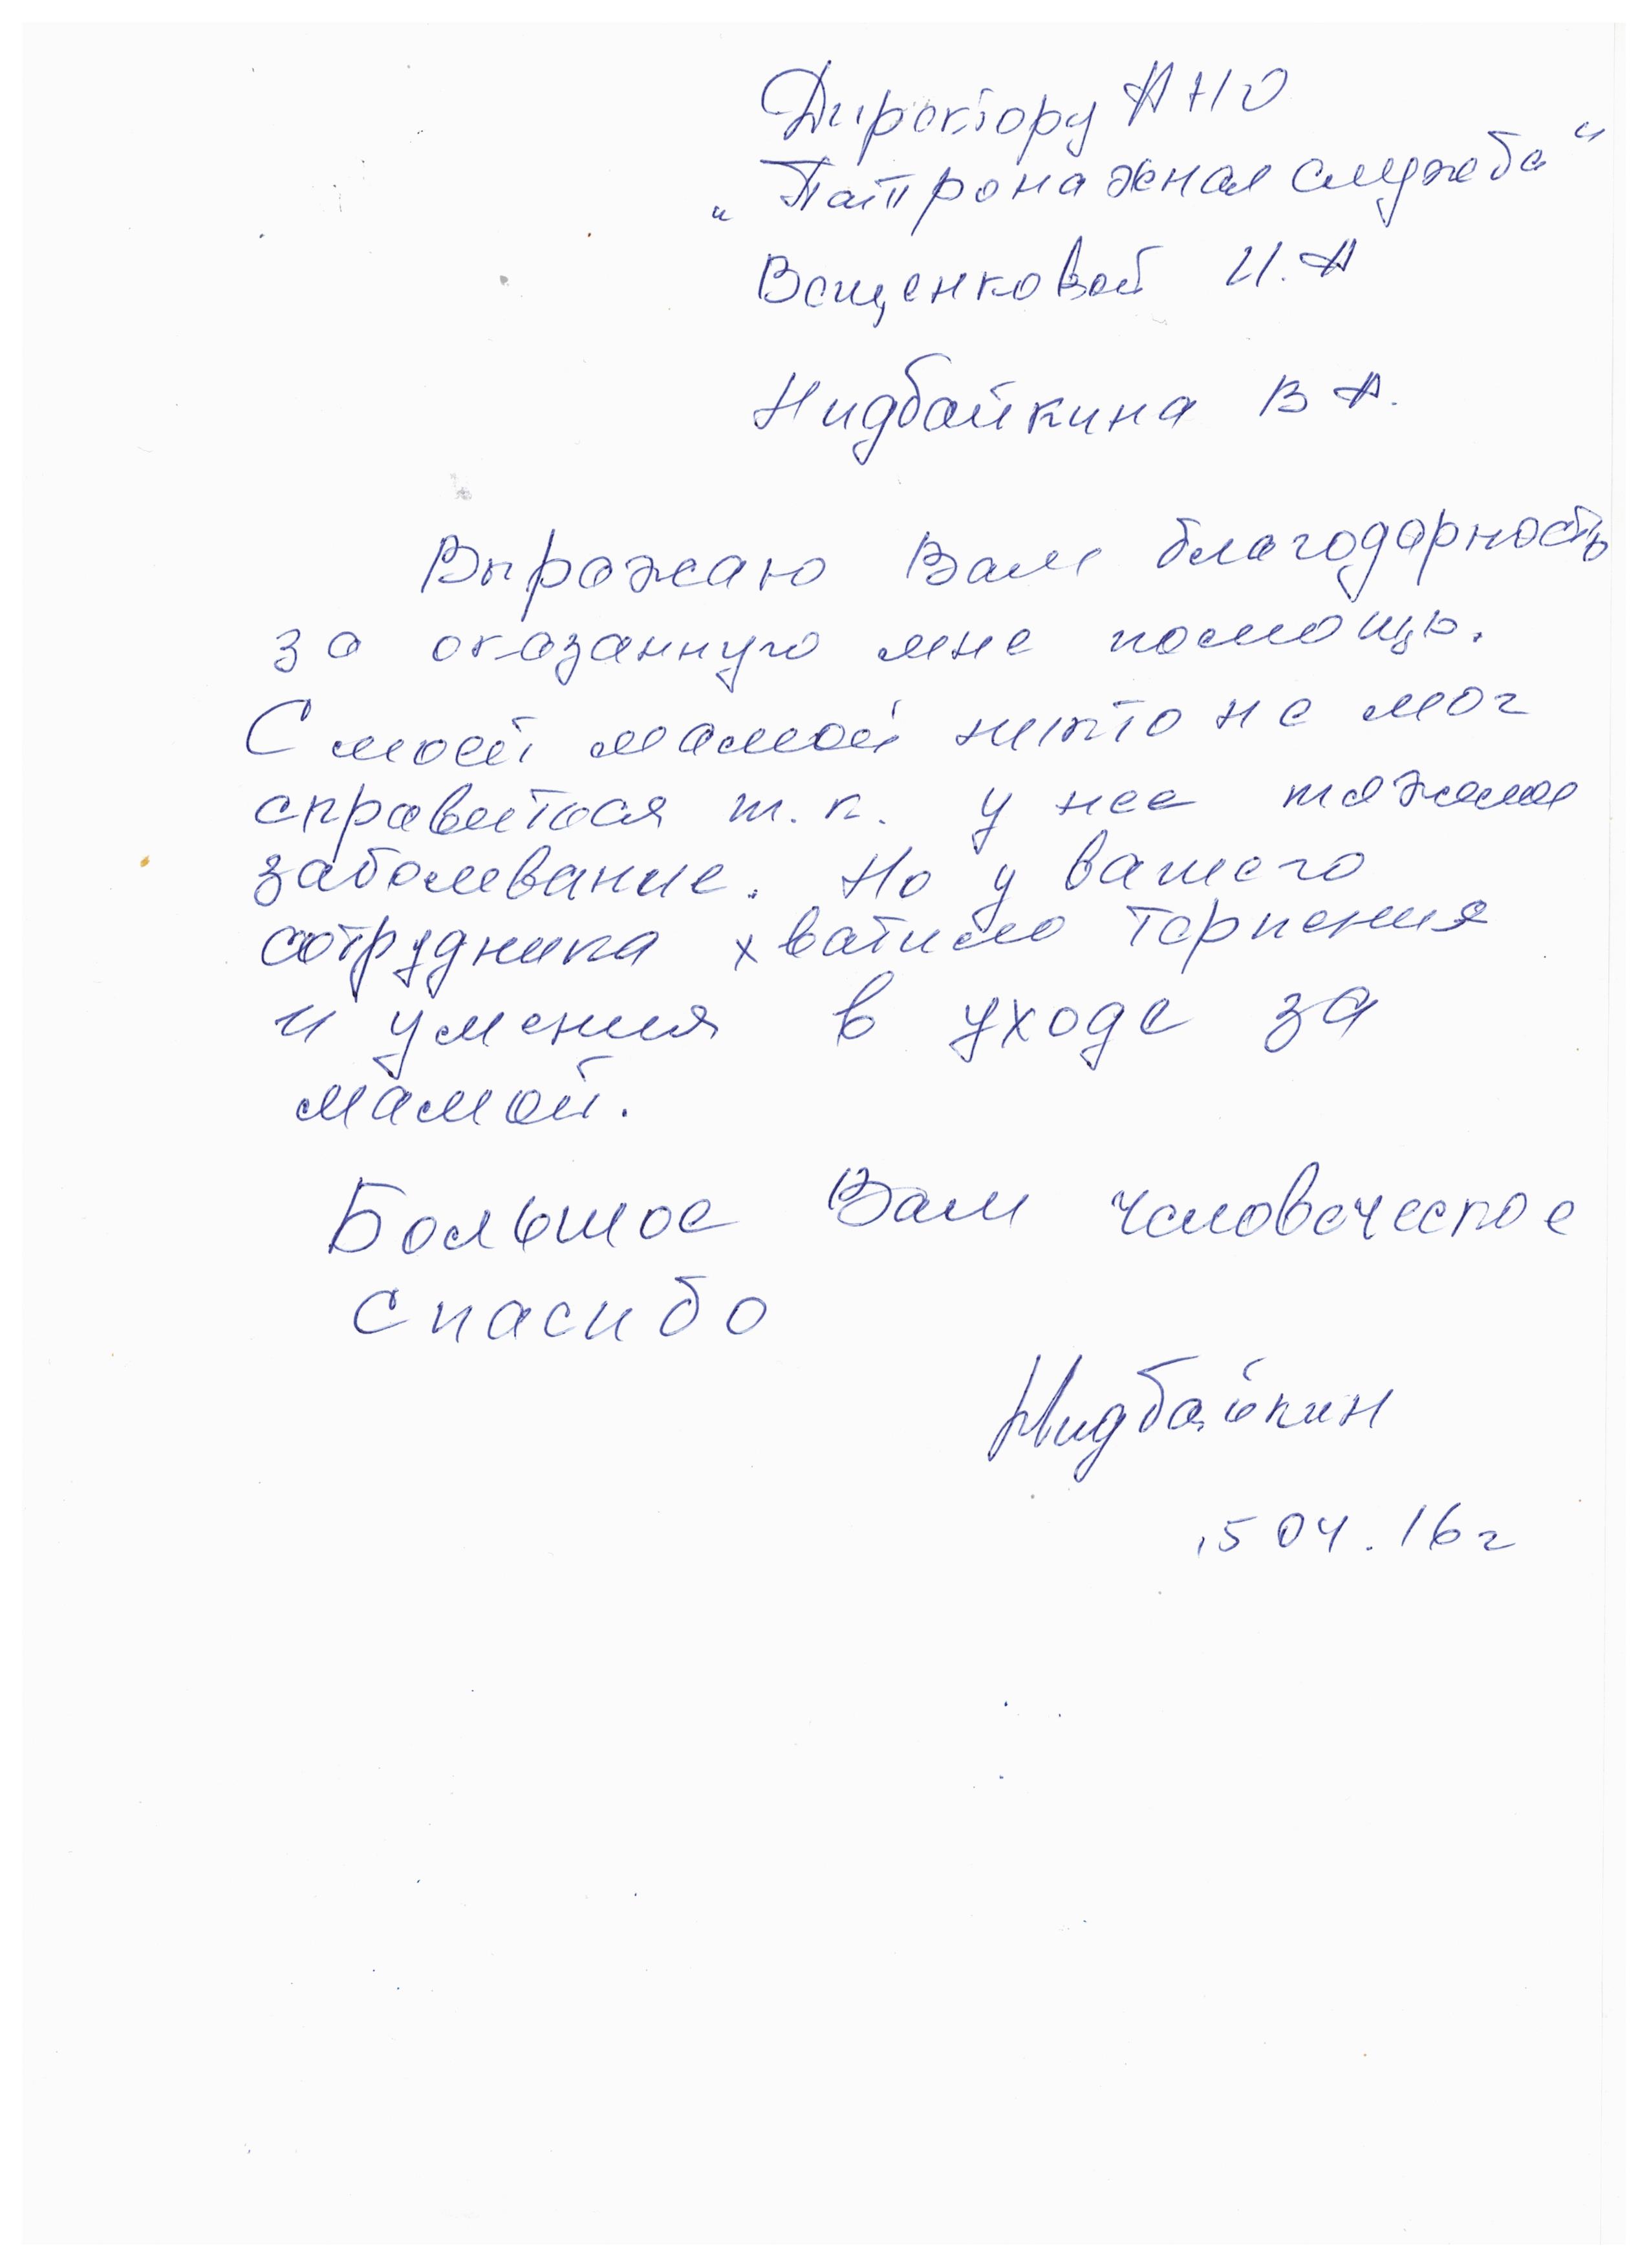 Директору АНО
„Патронажная служба"
Ващенковой И.А
Нидбайкина В А.
Выражаю Вам благодарность
за оказанную мне помощь.
С моей мамой никто не мог
справиться т.к. у нее тяжелое
заболевание. Но у вашего
сотрудника хватило терпения
и умения в уходе за
мамой.
Большое Вам человеческое
спасибо
Нидбайкин
15 04. 16 г